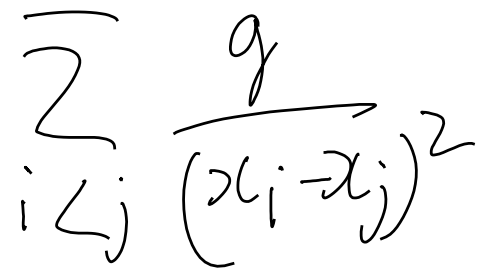 \sum_{i<j} \frac{g}{(x_i-x_j)^2}